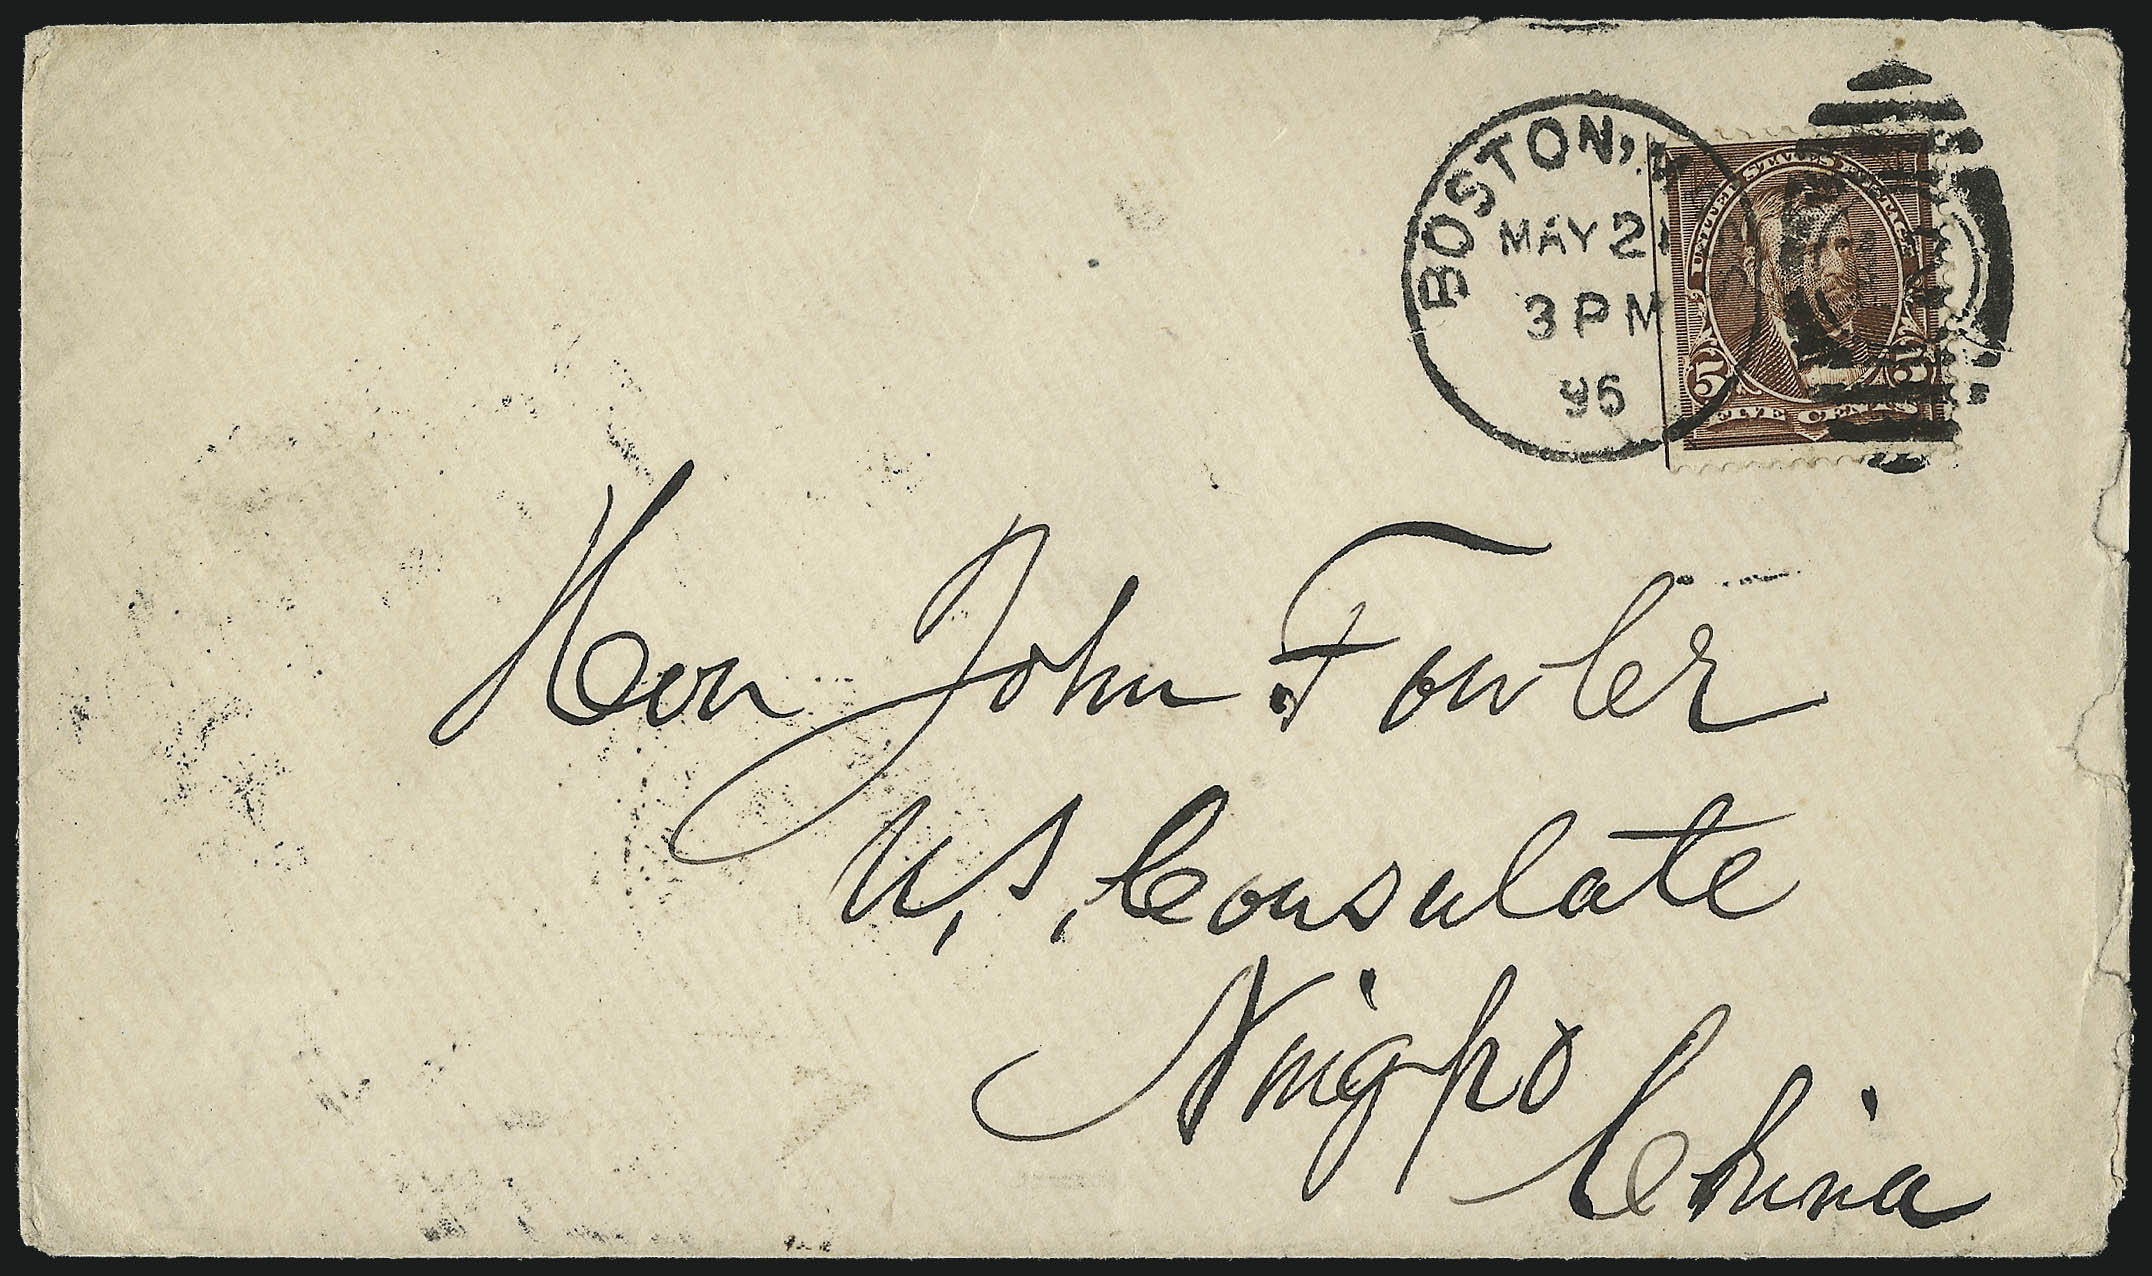 BOSTON,
MAY 21
3 PM
96
UNITED STATES POSTAGE
5 5
FIVE CENTS
Hon John Fowler
U, S, Consulate
Ningpo
China